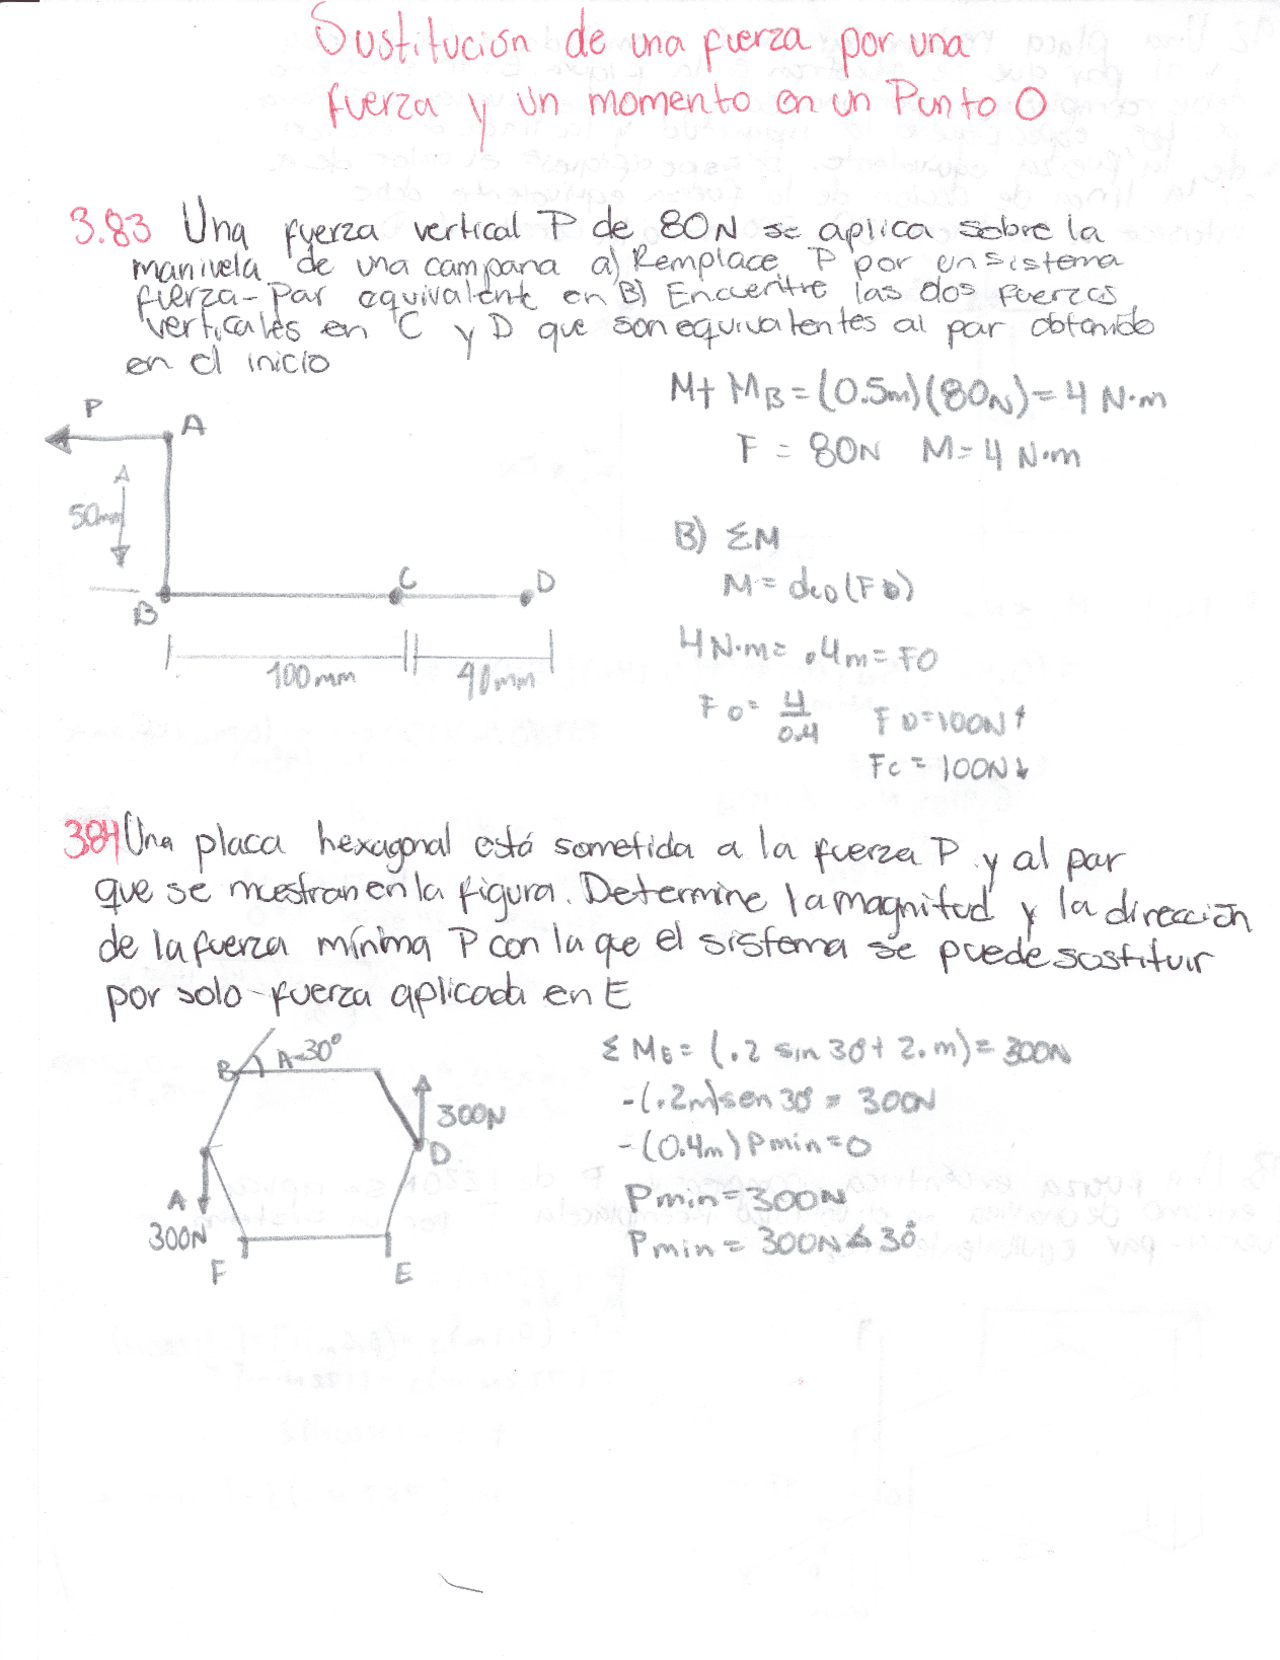 Sustitución de una fuerza por una
fuerza y un momento en un Punto O
3.83 Una fuerza vertical P de 80N se aplica sobre la
manivela de una campana a) Remplace P por un sistema
fuerza-Par equivalente en B) Encuentre las dos fuerzas
verticales en C y D que son equivalentes al par obtenido
en el inicio
P
A
A
50mm
B
C
D
100mm
40mm
M+ MB=(0.5m)(80N)=4 N·m
F = 80N M=4 N·m
B) ΣM
M= dco(FD)
4N·m= .4m=FD
FD= 4/0.4 FD=100N↑
Fc = 100N↓
384 Una placa hexagonal está sometida a la fuerza P y al par
que se muestran en la figura. Determine la magnitud y la dirección
de la fuerza mínima P con la que el sistema se puede sustituir
por solo fuerza aplicada en E
B A 30°
300N
D
A
300N
F
E
Σ ME = (.2 sin 30+ 2.m)= 300N
-(.2m)sen 30° = 300N
-(0.4m) Pmin=0
Pmin=300N
Pmin = 300N∡30°